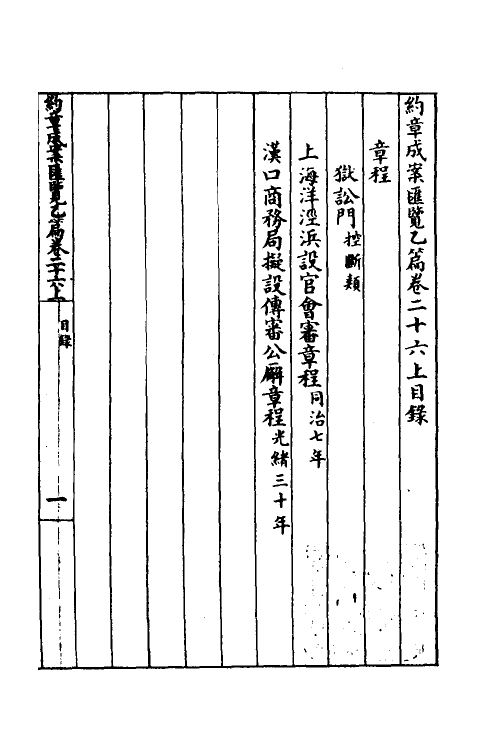 約章成案匯覽乙篇卷二十六上目錄
章程
獄訟門控斷類
上海洋涇浜設官會審章程同治七年
漢口商務局擬設傳審公廨章程光緒三十年
約章成案匯覽乙篇卷二十六上
目錄
一